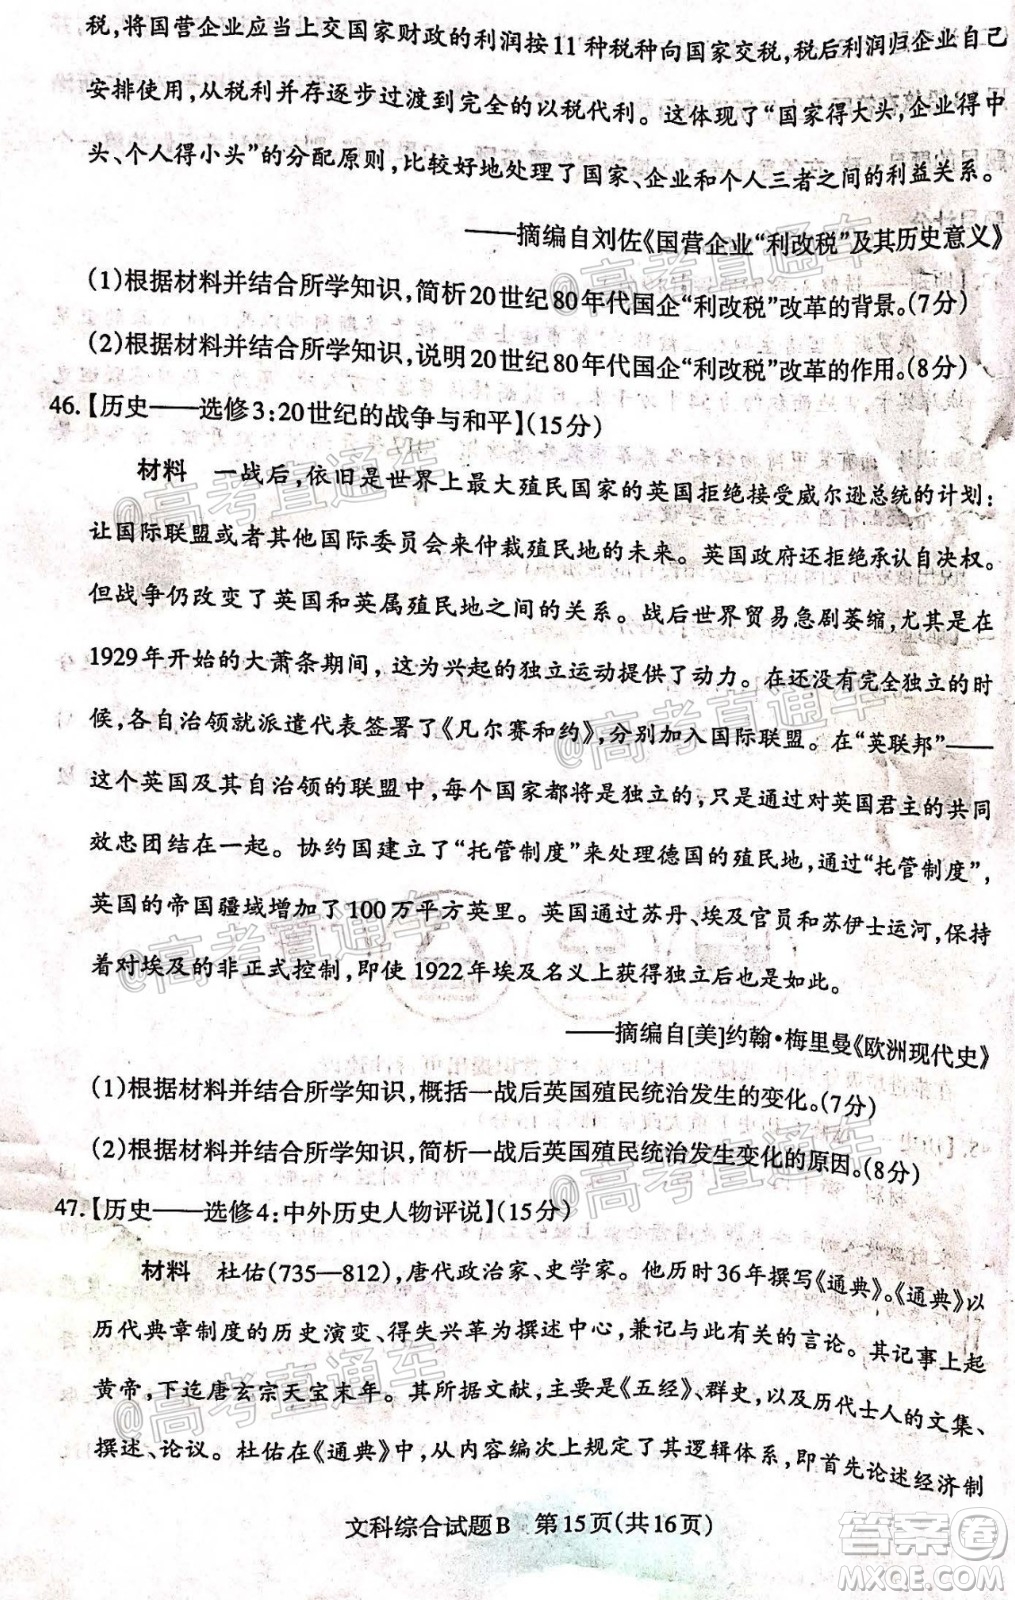 税,将国营企业应当上交国家财政的利润按11种税种向国家交税,税后利润归企业自己
安排使用,从税利并存逐步过渡到完全的以税代利。这体现了“国家得大头,企业得中
头、个人得小头”的分配原则,比较好地处理了国家、企业和个人三者之间的利益关系。
——摘编自刘佐《国营企业“利改税”及其历史意义》
(1)根据材料并结合所学知识,简析20世纪80年代国企“利改税”改革的背景。(7分)
(2)根据材料并结合所学知识,说明20世纪80年代国企“利改税”改革的作用。(8分)
46.【历史——选修3:20世纪的战争与和平】(15分)
材料 一战后,依旧是世界上最大殖民国家的英国拒绝接受威尔逊总统的计划:
让国际联盟或者其他国际委员会来仲裁殖民地的未来。英国政府还拒绝承认自决权。
但战争仍改变了英国和英属殖民地之间的关系。战后世界贸易急剧萎缩,尤其是在
1929年开始的大萧条期间,这为兴起的独立运动提供了动力。在还没有完全独立的时
候,各自治领就派遣代表签署了《凡尔赛和约》,分别加入国际联盟。在“英联邦”——
这个英国及其自治领的联盟中,每个国家都将是独立的,只是通过对英国君主的共同
效忠团结在一起。协约国建立了“托管制度”来处理德国的殖民地,通过“托管制度”,
英国的帝国疆域增加了100万平方英里。英国通过苏丹、埃及官员和苏伊士运河,保持
着对埃及的非正式控制,即使1922年埃及名义上获得独立后也是如此。
——摘编自[美]约翰·梅里曼《欧洲现代史》
(1)根据材料并结合所学知识,概括一战后英国殖民统治发生的变化。(7分)
(2)根据材料并结合所学知识,简析一战后英国殖民统治发生变化的原因。(8分)
47.【历史——选修4:中外历史人物评说】(15分)
材料 杜佑(735—812),唐代政治家、史学家。他历时36年撰写《通典》。《通典》以
历代典章制度的历史演变、得失兴革为撰述中心,兼记与此有关的言论。其记事上起
黄帝,下迄唐玄宗天宝末年。其所据文献,主要是《五经》、群史,以及历代士人的文集、
撰述、论议。杜佑在《通典》中,从内容编次上规定了其逻辑体系,即首先论述经济制
文科综合试题B 第15页(共16页)
@高考直通车
@高考直通车
@高考直通车
@高考直通车
@高考直通车
@高考直通车
答案卷
MXQE.COM